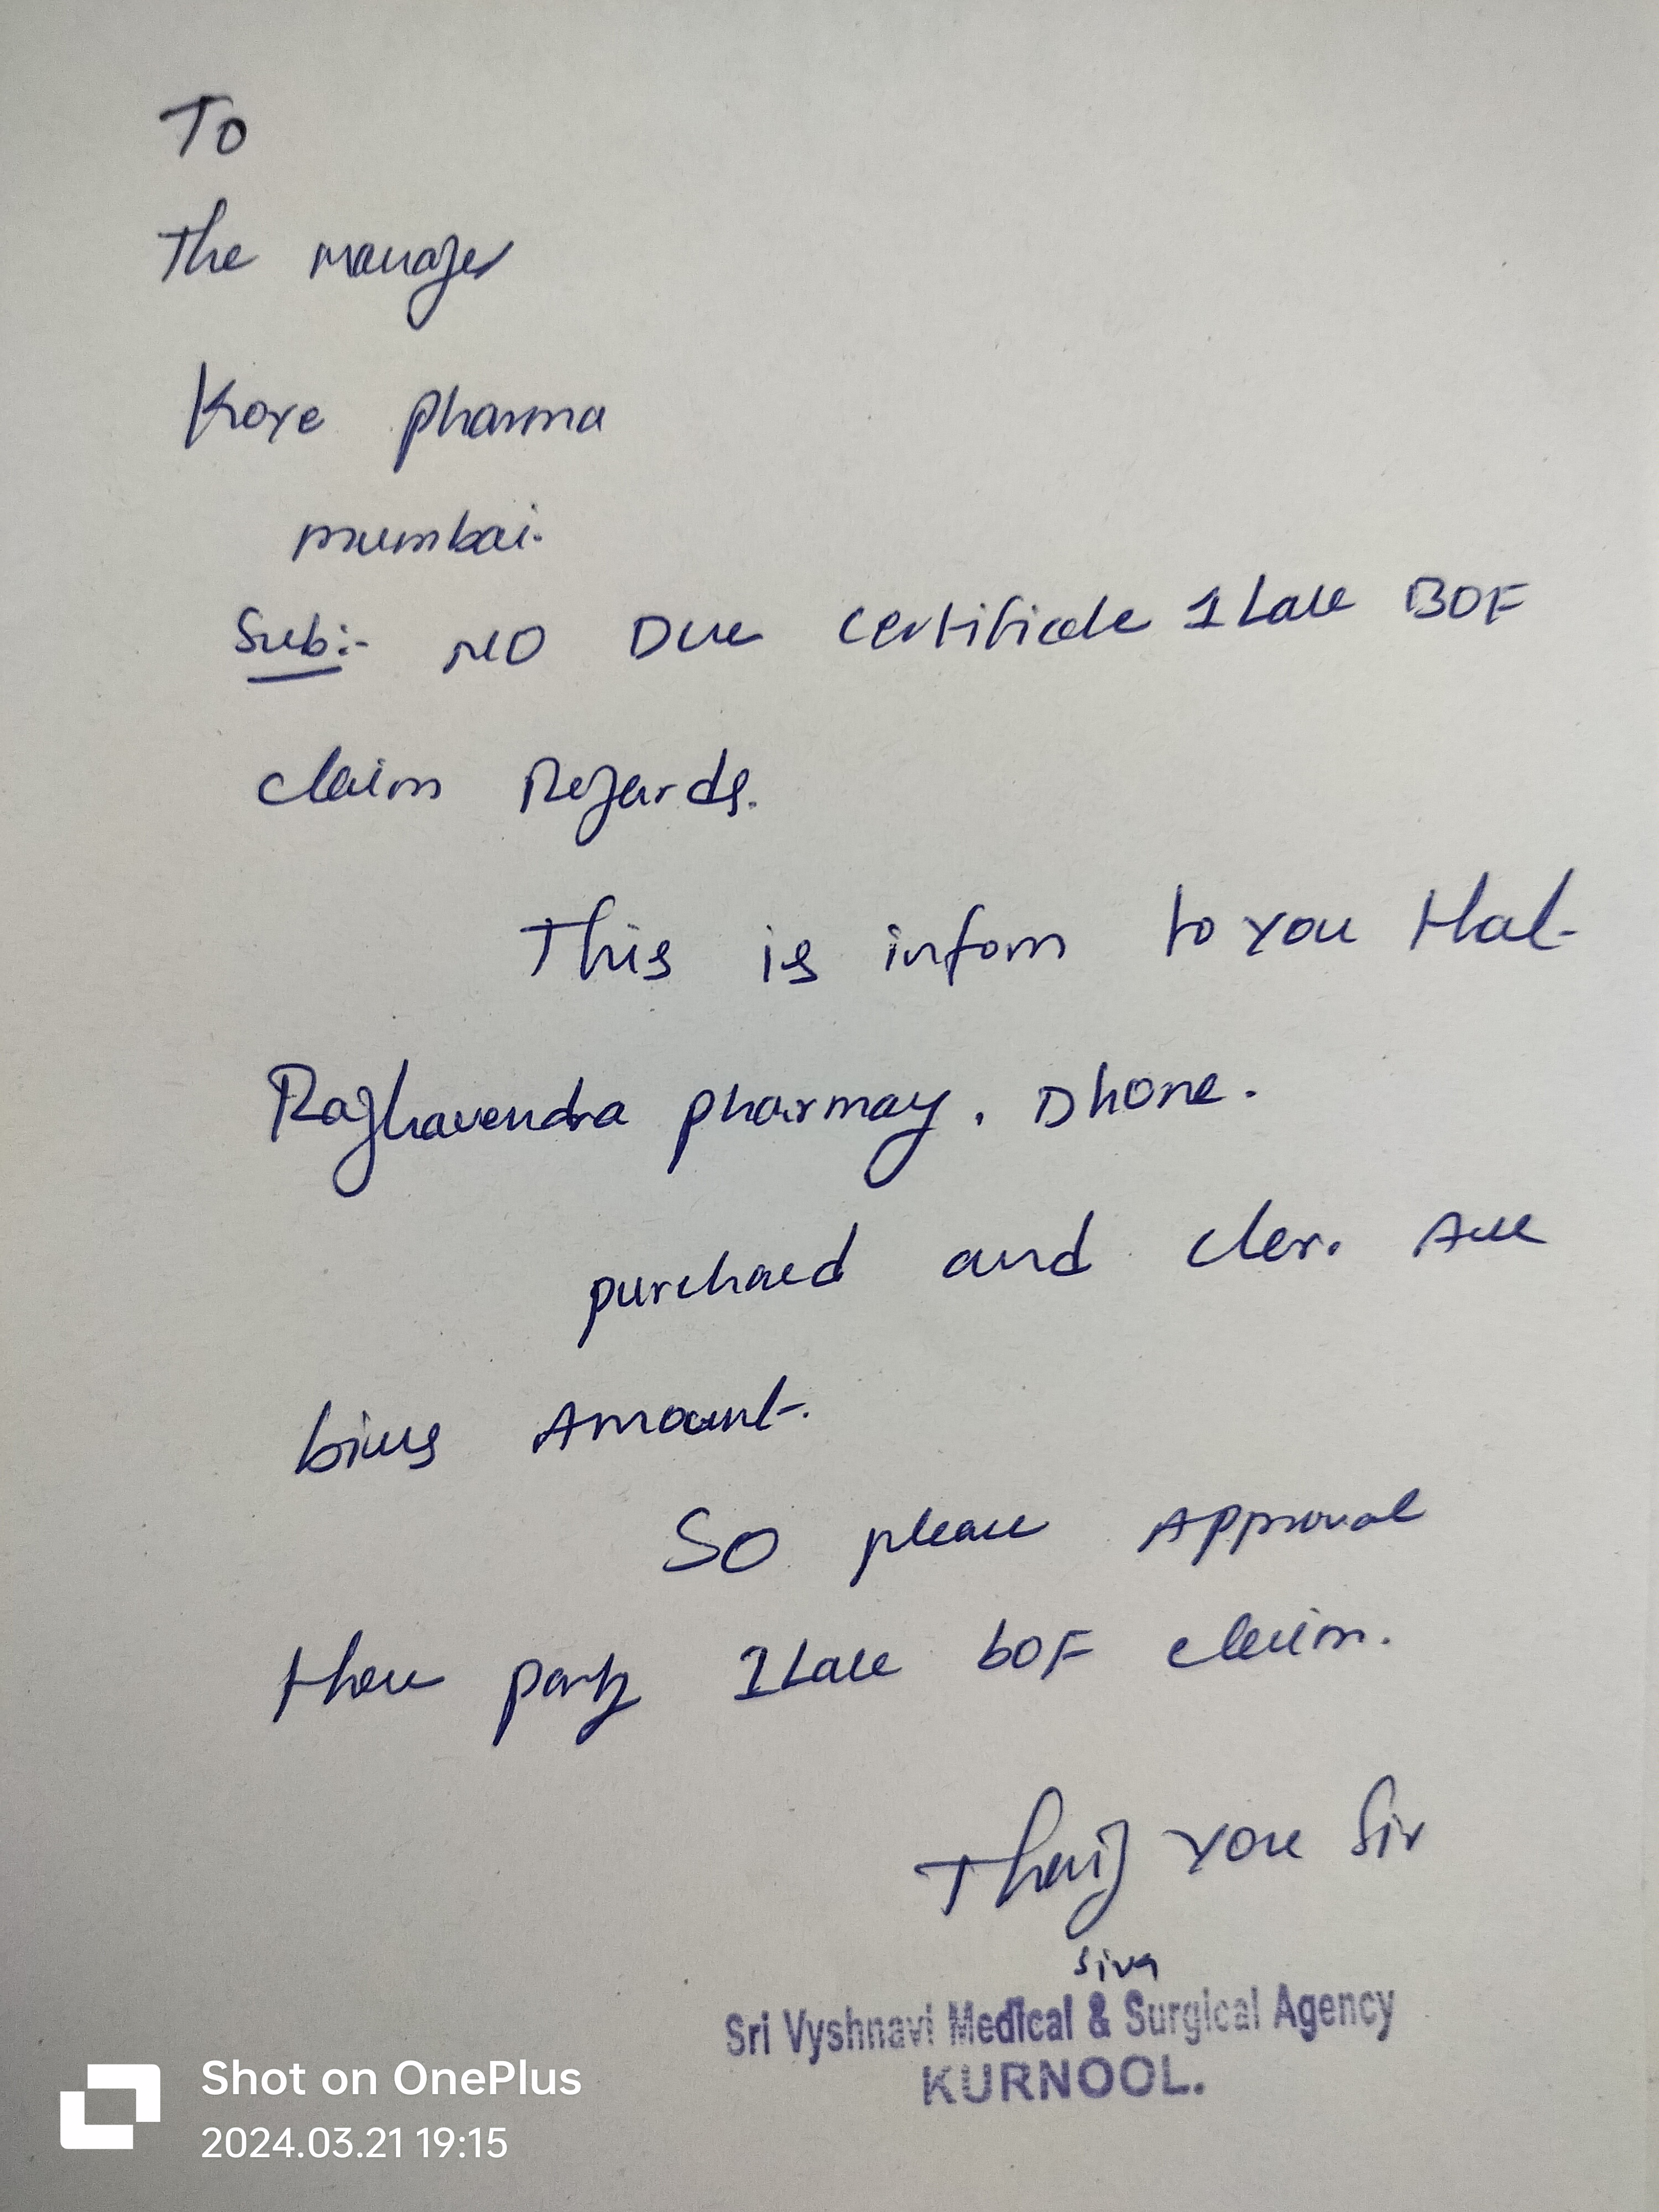 To
The manager
Kore pharma
mumbai.
Sub:- NO Due certificate 1 Lake BOF
claim Regards.
This is infom to you that
Raghavendra pharmay. Dhone.
purchaed and cler. All
bills Amount.
So please Approval
thou party 1 Lake bOF claim.
Thank you Sir
Siva
Sri Vyshnavi Medical & Surgical Agency
KURNOOL.
Shot on OnePlus
2024.03.21 19:15